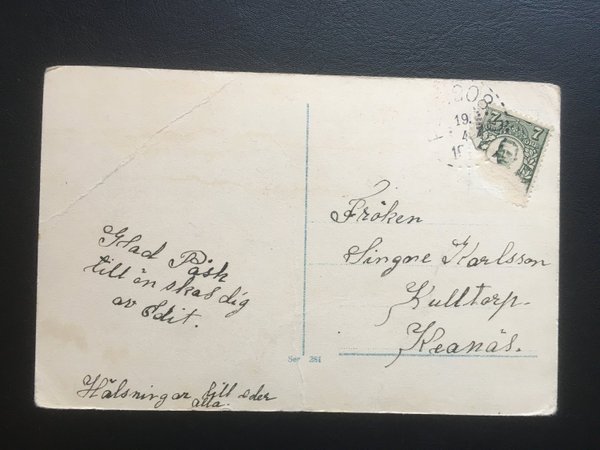 Glad Påsk
till ön skas dig
av Edit.
Hälsningar till eder
alla.
Fröken
Singne Karlsson
Kulltorp.
Reanäs.
Ser 281
908
19.
4
7 7